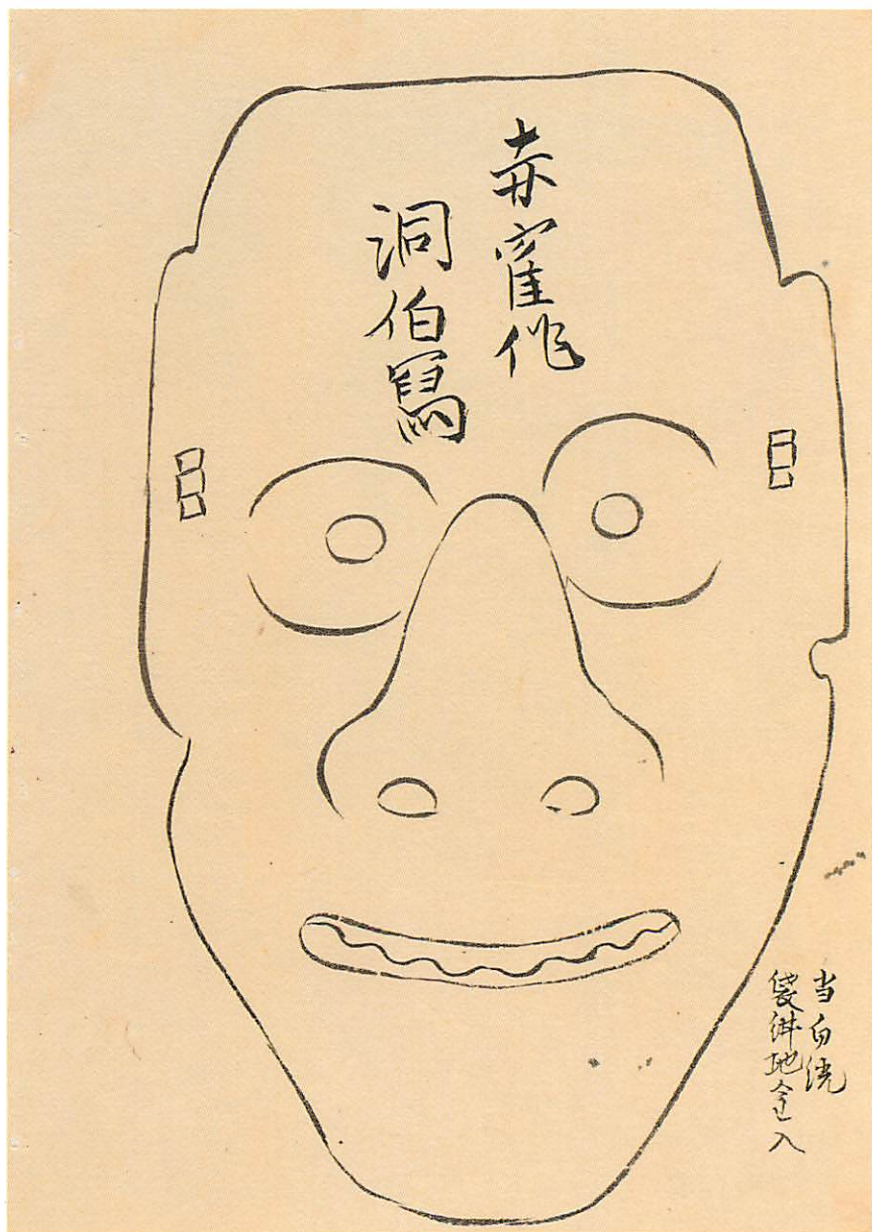 赤寉作
洞伯寫
当白絖
袋地金入